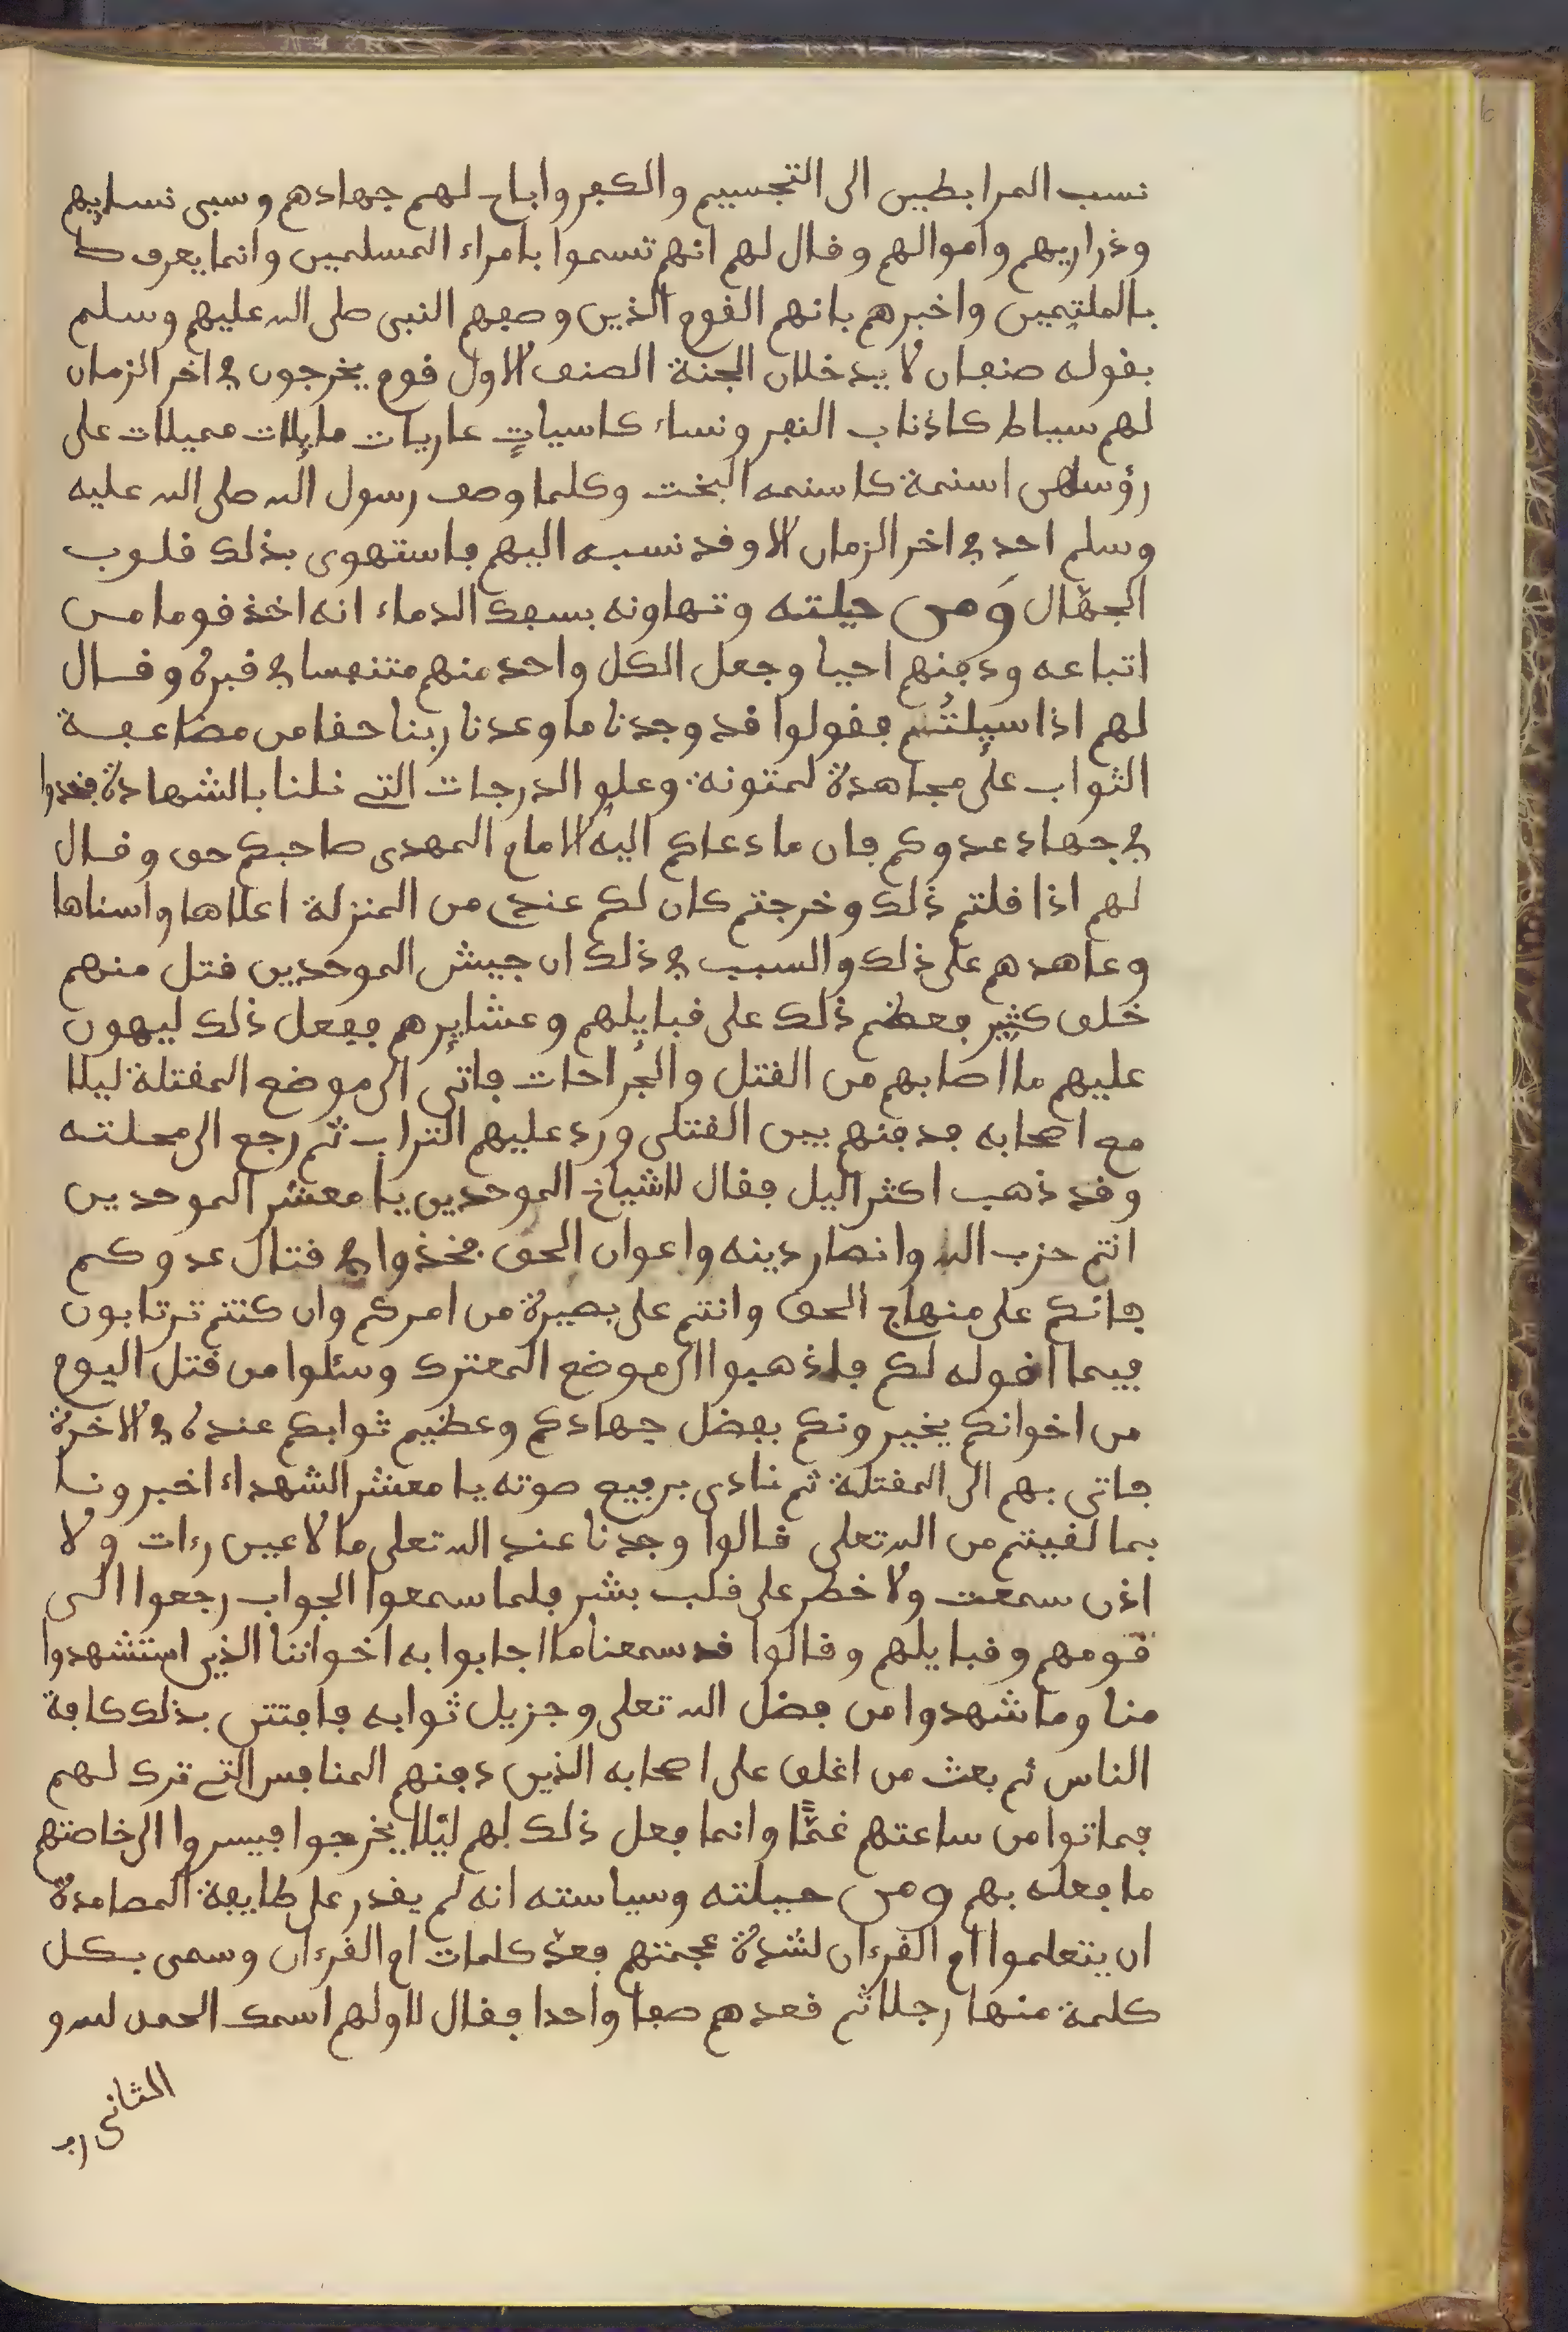 نسب المرابطين الى التجسيم والكفر واباح لهم جهادهم وسبى نسايهم
وذراريهم واموالهم وقال لهم انهم تسموا بامراء المسلمين وانما يعرف
بالملثمين واخبرهم بانهم القوم الذين وصفهم النبى صلى الله عليهم وسلم
بقوله صنفان لا يدخلان الجنة الصنف الاول قوم يخرجون في اخر الزمان
لهم سياط كاذناب البقر ونساء كاسياتٍ عاريات مايلات مميلات على
رؤسهن اسنمة كاسنمه البخت وكلما وصف رسول الله صلى الله عليه
وسلم احد في اخر الزمان الا وقد نسبه اليهم فاستهوى بذلك قلوب
الجهّال وَمن حيلته وتهاونه بسفك الدماء انه اخذ قوما من
اتباعه ودفنهم احيا وجعل الكل واحد منهم متنفسا في قبره وقال
لهم اذا سيلتُم فقولوا قد وجدنا ما وعدنا ربنا حقا من مضاعفة
الثواب على مجاهدة لمتونة وعلو الدرجات التي نلنا بالشهادة فجدوا
في جهاد عدوكم فان ما دعاكم اليه الامام المهدى صاحبكم حق وقال
لهم اذا قلتم ذلك وخرجتم كان لكم عندي من المنزلة اعلاها واسناها
وعاهدهم على ذلك والسبب في ذلك ان جيش الموحدين قتل منهم
خلق كثير فعظم ذلك على قبايلهم وعشايرهم ففعل ذلك ليهون
عليهم ما اصابهم من القتل والجراحات فاتى الى موضع المقتلة ليلا
مع اصحابه فدفنهم بين القتلى ورد عليهم التراب ثم رجع الى محلته
وقد ذهب اكثر اليل فقال لاشياخ الموحدين يا معشر الموحدين
انتم حزب الله وانصار دينه واعوان الحق فخذوا في قتال عدوكم
فانكم على منهاج الحق وانتم على بصيرة من امركم وان كنتم ترتابون
فيما اقوله لكم فاذهبوا الى موضع المعترك وسئلوا من قتل اليوم
من اخوانكم يخبرونكم بفضل جهادكم وعظيم ثوابكم عنده في الاخرة
فاتى بهم الى المقتلة ثم نادى برفيع صوته يا معشر الشهداء اخبرونا
بما لقيتم من الله تعلى قالوا وجدنا عند الله تعلى ما لا عين رءات ولا
اذن سمعت ولا خطر على قلب بشر فلما سمعوا الجواب رجعوا الى
قومهم وقبايلهم وقالوا قد سمعنا ما اجابوا به اخواننا الذين استشهدوا
منا وما شهدوا من فضل الله تعلى وجزيل ثوابه فافتتن بذلك كافة
الناس ثم بعث من اغلق على اصحابه الذين دفنهم المنافس التي ترك لهم
فماتوا من ساعتهم غمًّا وانما فعل ذلك بهم ليلا يخرجوا فيسروا الى خاصتهم
ما فعله بهم ومن حيلته وسياسته انه لم يقدر على طايفة المصامدة
ان يتعلموا ام القرءان لشدة عجمتهم فعدّ كلمات ام القرءان وسمى بكل
كلمة منها رجلا ثم قعدهم صفا واحدا فقال لاولهم اسمك الحمد لله و
الثانى رب